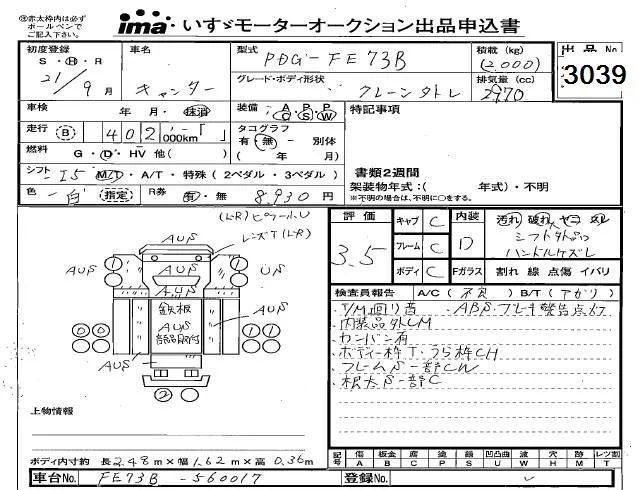 ㊟赤太枠内は必ず
ボールペンで
ご記入下さい。
ima いすゞモーターオークション出品申込書
初度登録 車名 型式 積載 (kg) 出品No
S・H・R 21/9月 キャンター PDG-FE73B (2,000) 3039
グレード・ボディ形状 排気量 (cc)
クレーン外レ 2970
車検 年・月・抹消 装備 A P P 特記事項
C S W
走行 B 402,000km タコグラフ
有・無 - 別体
燃料 G・D・HV 他( ) ( 年 月)
シフト I5 M/T・A/T・特殊 (2ペダル・3ペダル) 書類2週間
架装物年式:( 年式)・不明
色 白 指定 R券 有・無 8,930円 ※不明の場合は、不明に○をする。
評価 キャブ C 内装 汚れ 破れ ヤニ スレ
3.5 フレーム C D シフト外品
ハンドルケズレ
ボディ C Fガラス 割れ 線 点傷 イバリ
(L・R)ピラー小U
レンズT(L・R)
AUS
AUS
AUS
AUS
US
鉄板
AUS
部品取付
AUS
AUS
検査員報告 A/C (不良) B/T (アガリ)
T/M回り音 ABS・ブレーキ警告点灯
内装品外しM
カンバン有
ボディー枠T・うら枠CH
フレームS一部CW
根太S一部C
上物情報
ボディ内寸約 長2.48m×幅1.62m×高0.36m
記号 傷 板金 腐 塗 錆 凹凸曲 波 穴 跡 レンズ割
A B C P S U W H M T
車台No. FE73B-560017 JAAI検査No.